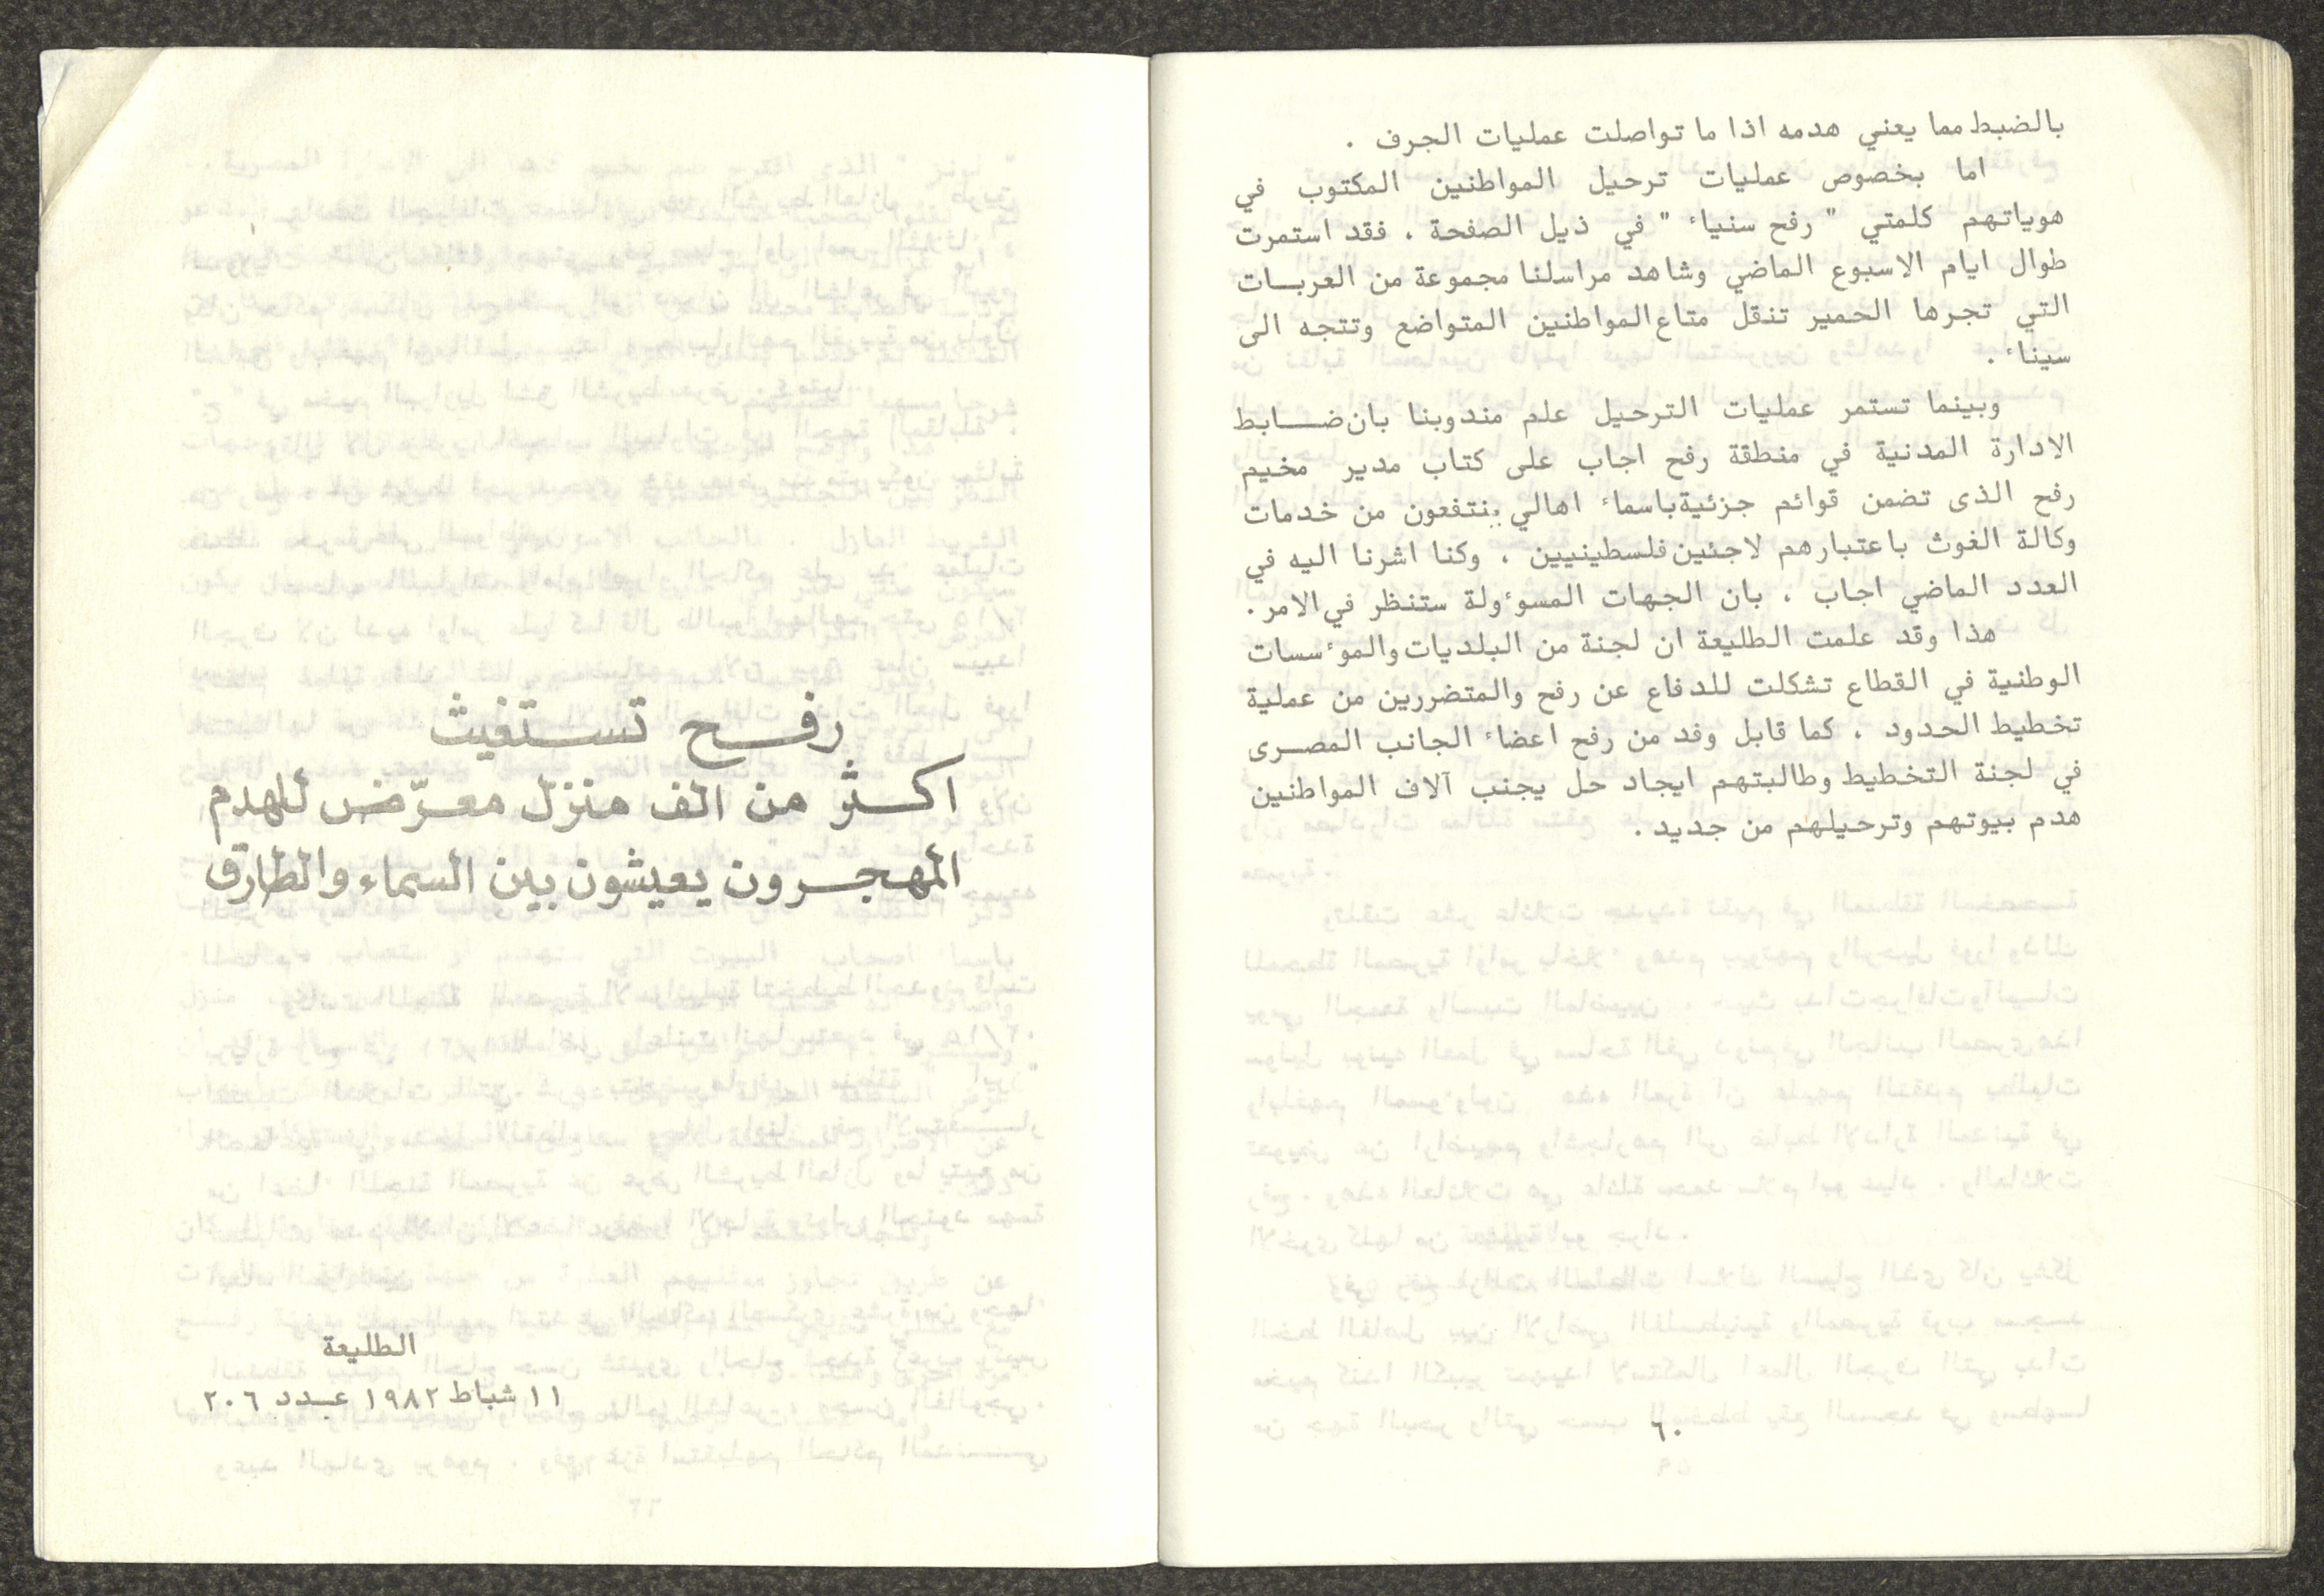 بالضبط مما يعني هدمه اذا ما تواصلت عمليات الجرف .
اما بخصوص عمليات ترحيل المواطنين المكتوب في
هوياتهم كلمتي " رفح سنياء " في ذيل الصفحة ، فقد استمرت
طوال ايام الاسبوع الماضي وشاهد مراسلنا مجموعة من العربات
التي تجرها الحمير تنقل متاع المواطنين المتواضع وتتجه الى
سيناء .
وبينما تستمر عمليات الترحيل علم مندوبنا بان ضابط
الادارة المدنية في منطقة رفح اجاب على كتاب مدير مخيم
رفح الذى تضمن قوائم جزئية باسماء اهالي ينتفعون من خدمات
وكالة الغوث باعتبارهم لاجئين فلسطينيين ، وكنا اشرنا اليه في
العدد الماضي اجاب ، بان الجهات المسوءولة ستنظر في الامر .
هذا وقد علمت الطليعة ان لجنة من البلديات والموءسسات
الوطنية في القطاع تشكلت للدفاع عن رفح والمتضررين من عملية
تخطيط الحدود ، كما قابل وفد من رفح اعضاء الجانب المصرى
في لجنة التخطيط وطالبتهم ايجاد حل يجنب آلاف المواطنين
هدم بيوتهم وترحيلهم من جديد .
٦٠
رفح تستغيث
اكثر من الف منزل معرّض للهدم
المهجرون يعيشون بين السماء والطارق
الطليعة
١١ شباط ١٩٨٢ عدد ٢٠٦